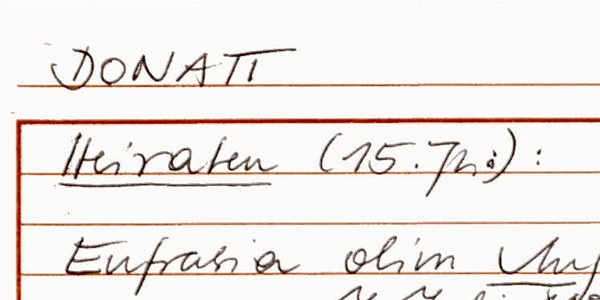 DONATI
Heiraten (15. Jh.):
Eufrasia olim